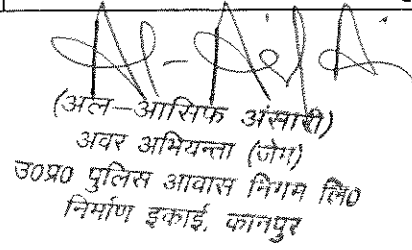 (अल-आसिफ अंसारी)
अवर अभियन्ता (जेग)
उ०प्र० पुलिस आवास निगम लि०
निर्माण इकाई, कानपुर